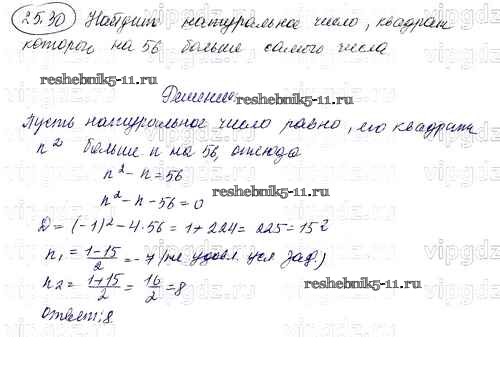 25.30 Найдите натуральное число, квадрат
которого на 56 больше самого числа
reshebnik5-11.ru reshebnik5-11.ru
Решение
Пусть натуральное число равно, его квадрат
n² больше n на 56, отсюда
n² - n = 56
reshebnik5-11.ru
n² - n - 56 = 0
D = (-1)² - 4·56 = 1 + 224 = 225 = 15²
n₁ = (1-15)/2 = -7 (не удовл. усл. зад.)
n₂ = (1+15)/2 = 16/2 = 8
reshebnik5-11.ru
Ответ: 8